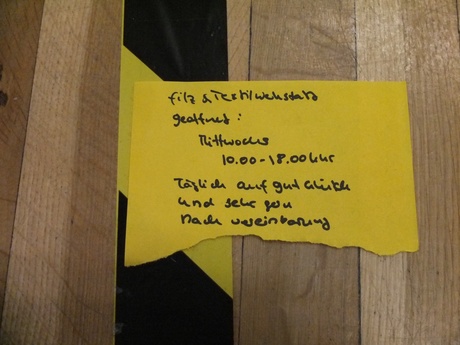 filz & Textilwerkstatt
geöffnet:
Mittwochs
10.00-18.00 Uhr
Täglich auf gut Glück
und sehr gern
nach vereinbarung